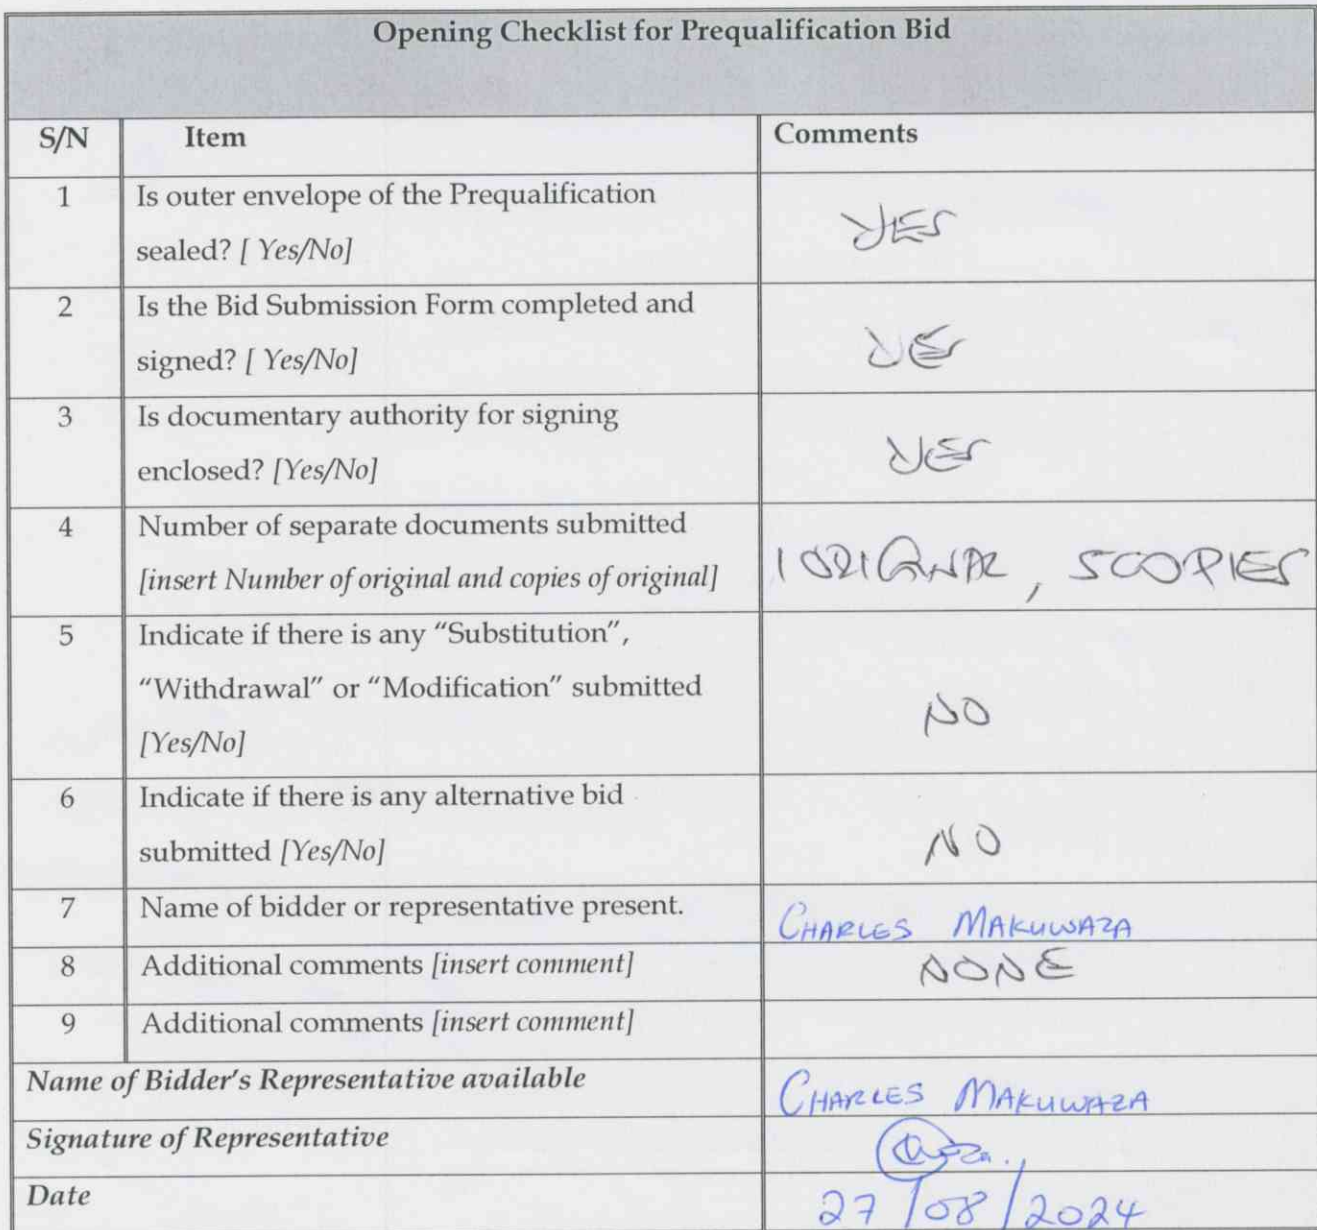 Opening Checklist for Prequalification Bid
S/N Item Comments
1 Is outer envelope of the Prequalification
sealed? [ Yes/No] YES
2 Is the Bid Submission Form completed and
signed? [ Yes/No] YES
3 Is documentary authority for signing
enclosed? [Yes/No] YES
4 Number of separate documents submitted
[insert Number of original and copies of original] 1 ORIGINAL, 5 COPIES
5 Indicate if there is any “Substitution”,
“Withdrawal” or “Modification” submitted
[Yes/No] NO
6 Indicate if there is any alternative bid
submitted [Yes/No] NO
7 Name of bidder or representative present. CHARLES MAKUWAZA
8 Additional comments [insert comment] NONE
9 Additional comments [insert comment]
Name of Bidder’s Representative available CHARLES MAKUWAZA
Signature of Representative
Date 27/08/2024